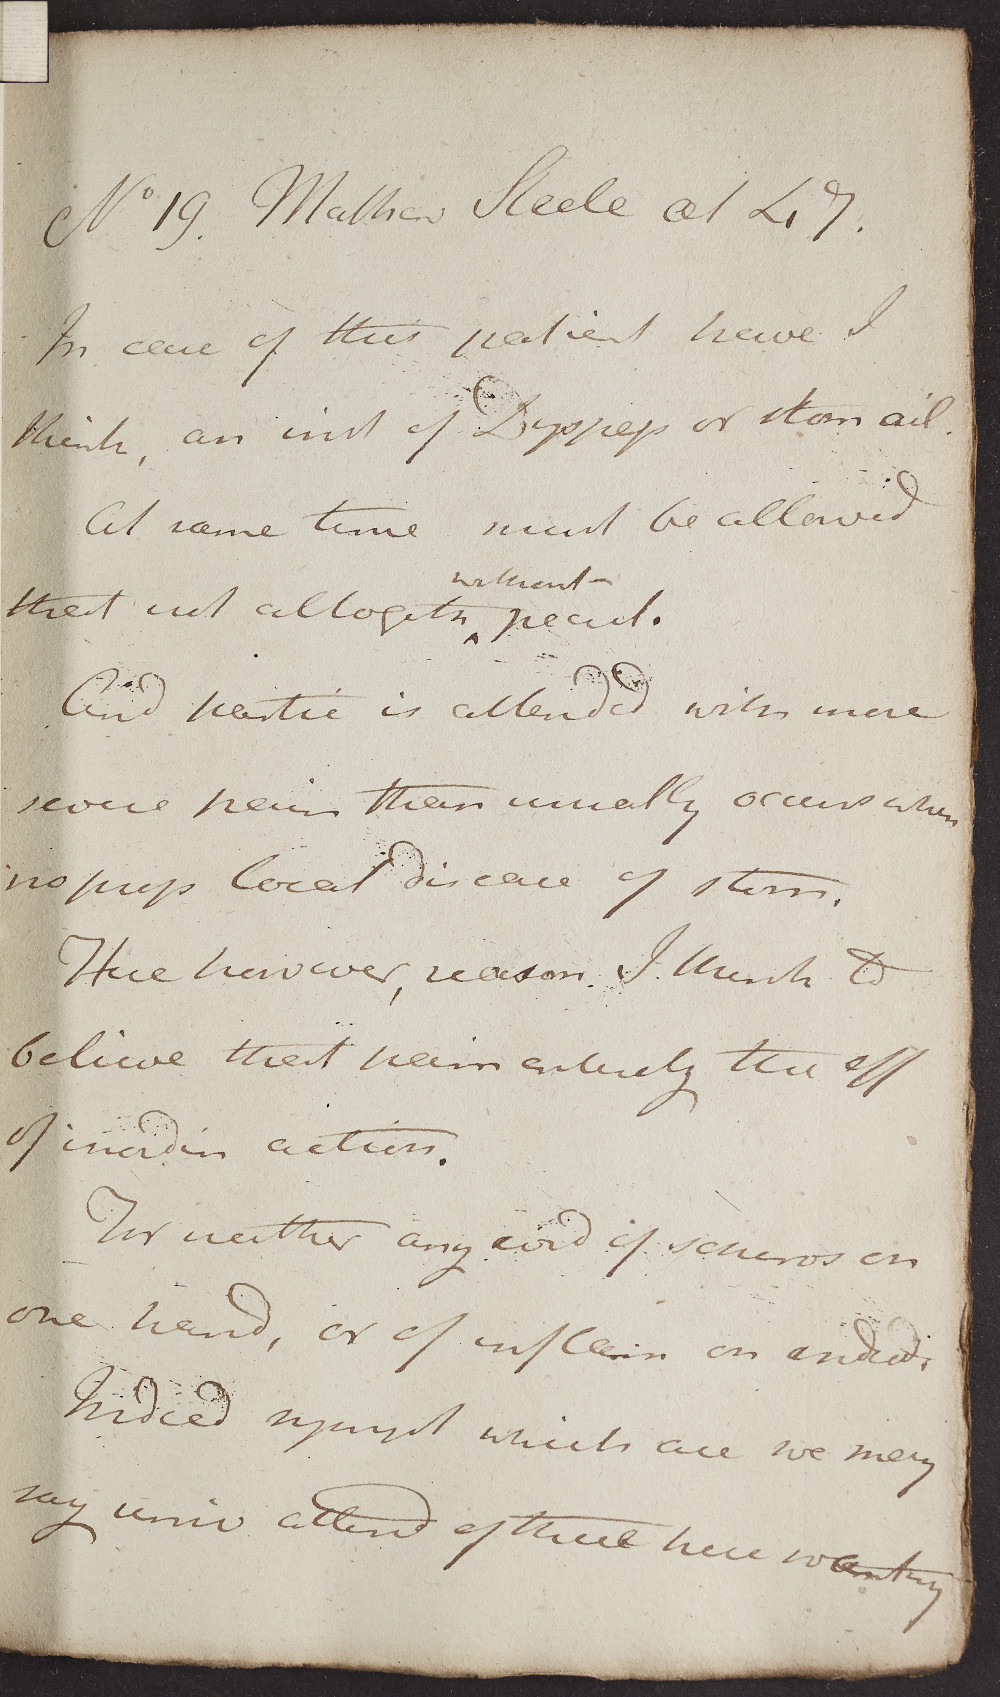 No 19. Mathew Steele aet 47.
In case of this patient have I
think, an inst of Dyspeps or stom ail.
At same time must be allowed
without
that not altogethr ^ pecul.
And partic is attended with more
severe pain than usually occurs when
no props local disease of stom.
Here however, reason I think to
believe that pain entirely the eff
of inordin action.
For neither any evid of schirros on
one hand, or of inflam on
Indeed sympt which are we may
say univ attend of these here wanting